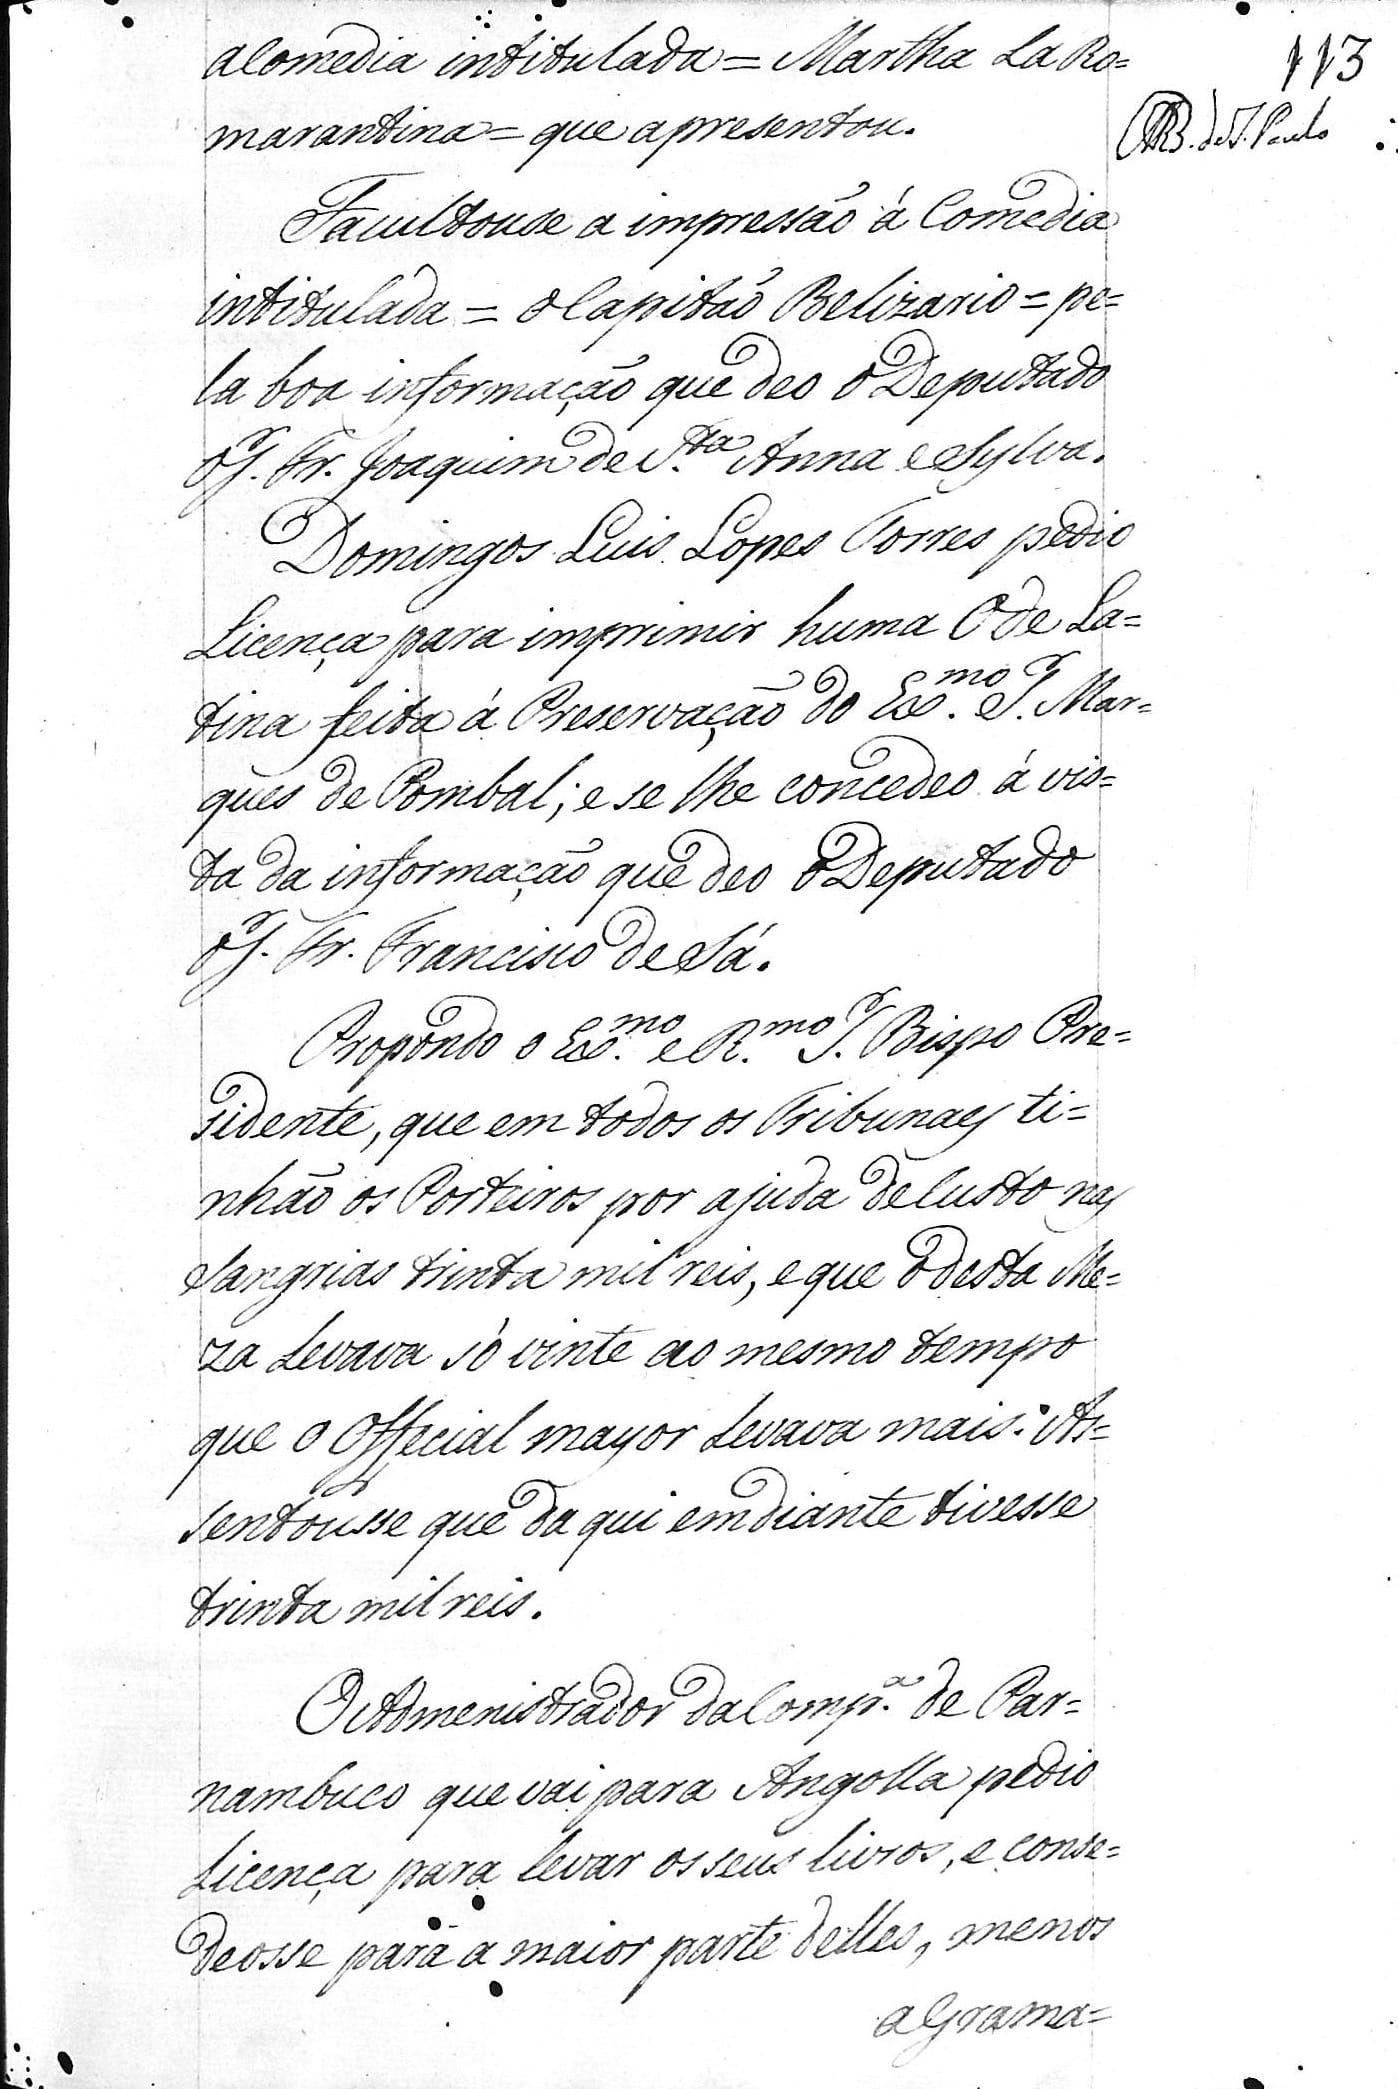 a Comedia intitulada = Martha La Ro=
marantina = que apresentou.
113
B. de S. Paulo
Facultouse a impressão á Comedia
intitulada = o Capitão Belizario = pe=
la boa informação que deo o Deputado
o S.r Fr. Joaquim de S.ta Anna e Sylva.
Domingos Luis Lopes Torres pedio
Licença para imprimir huma Ode La=
tina feita á Preservação do Ex.mo S.r Mar=
ques de Pombal; e se lhe concedeo á vis=
ta da informação que deo o Deputado
o S.r Fr. Francisco de Sá.
Propondo o Ex.mo e R.mo S.r Bispo Pre=
sidente, que em todos os Tribunaes ti=
nhão os Porteiros por ajuda de Custo nas
Sangrias trinta mil reis, e que o desta Me=
za Levava só vinte ao mesmo tempo
que o Offecial mayor Levava mais. As=
sentousse que da qui em diante tivesse
trinta mil reis.
O Admenistrador da Comp.a de Par=
nambuco que vai para Angolla pedio
Licença para levar os seus livros, e conse=
deosse para a maior parte delles, menos
a Grama=